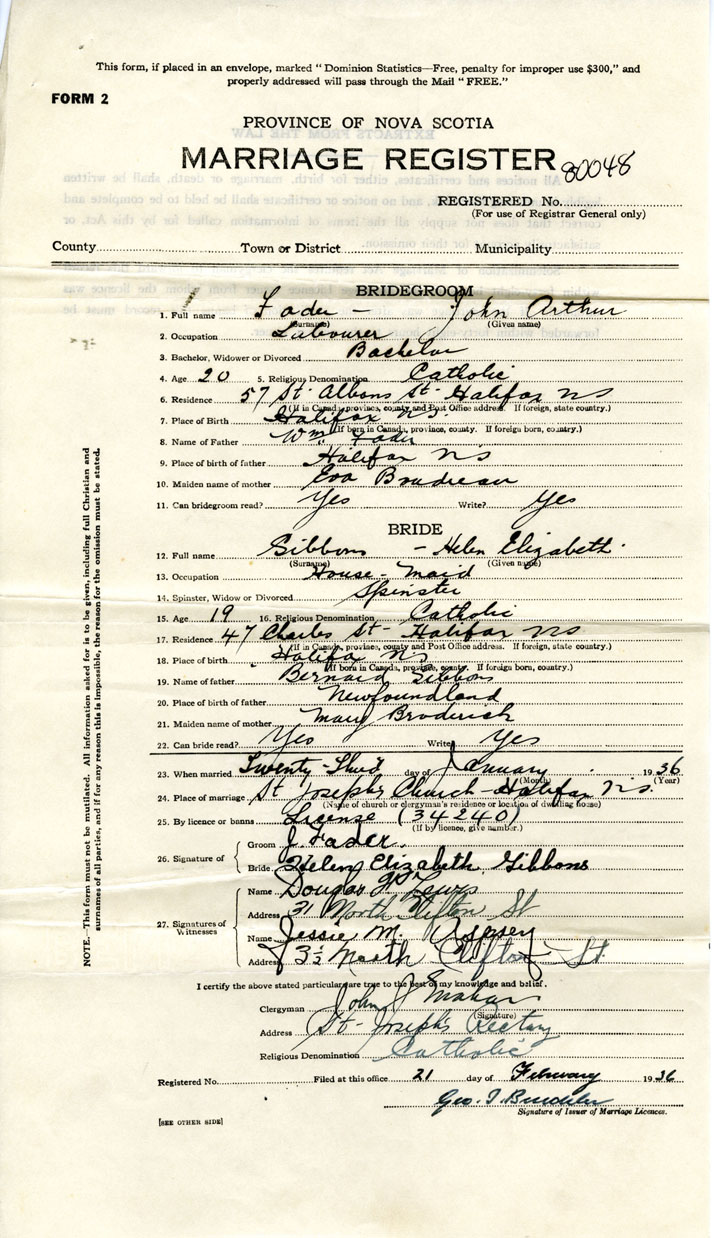 This form, if placed in an envelope, marked "Dominion Statistics—Free, penalty for improper use $300," and
properly addressed will pass through the Mail "FREE."
FORM 2
PROVINCE OF NOVA SCOTIA
MARRIAGE REGISTER 80048
REGISTERED No.
(For use of Registrar General only)
County Town or District Municipality
BRIDEGROOM
1. Full name Fader - John Arthur
(Surname) (Given name)
2. Occupation Labourer
3. Bachelor, Widower or Divorced Bachelor
4. Age 20 5. Religious Denomination Catholic
6. Residence 57 St. Albans St- Halifax NS
(If in Canada, province, county and Post Office address. If foreign, state country.)
7. Place of Birth Halifax N.S.
(If born in Canada, province, county. If foreign born, country.)
8. Name of Father Wm. Fader
9. Place of birth of father Halifax NS
10. Maiden name of mother Eva
11. Can bridegroom read? Yes Write? Yes
BRIDE
12. Full name Gibbons - Helen Elizabeth
(Surname) (Given name)
13. Occupation House-Maid
14. Spinster, Widow or Divorced Spinster
15. Age 19 16. Religious Denomination Catholic
17. Residence 47 Charles St- Halifax NS
(If in Canada, province, county and Post Office address. If foreign, state country.)
18. Place of birth Halifax NS
(If born in Canada, province, county. If foreign born, country.)
19. Name of father Bernard Gibbons
20. Place of birth of father Newfoundland
21. Maiden name of mother Mary Broderick
22. Can bride read? Yes Write Yes
23. When married Twenty-Third day of January 1936
(Month) (Year)
24. Place of marriage St Joseph's Church-Halifax N.S.
(Name of church or clergyman's residence or location of dwelling house)
25. By licence or banns License (34240)
(If by licence, give number.)
26. Signature of
Groom J. Fader.
Bride Helen Elizabeth Gibbons
27. Signatures of Witnesses
Name Douglas
Address 31 North Clifton St
Name Jessie M.
Address 3½ North Clifton St.
I certify the above stated particulars are true to the best of my knowledge and belief.
Clergyman John J
(Signature)
Address St-Joseph's Rectory
Religious Denomination Catholic
Registered No. Filed at this office 21 day of February 1936
Geo. I.
Signature of Issuer of Marriage Licences.
[SEE OTHER SIDE]
NOTE.—This form must not be mutilated. All information asked for is to be given, including full Christian and
surnames of all parties, and if for any reason this is impossible, the reason for the omission must be stated.